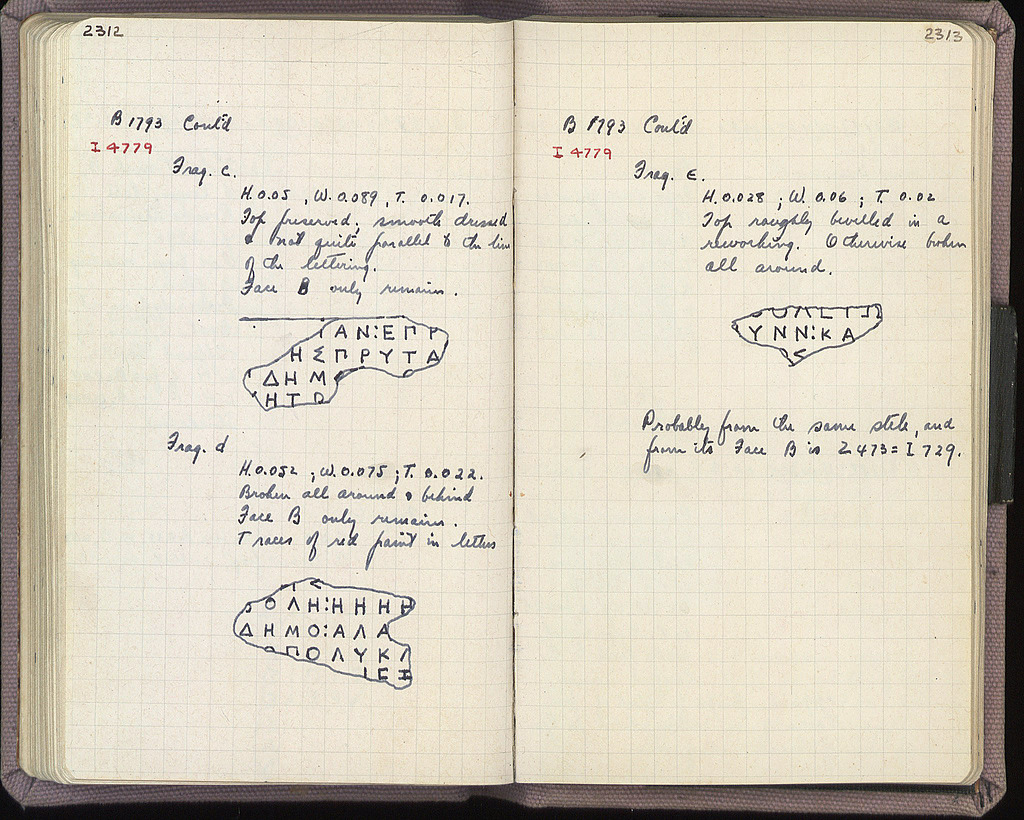 2312
B 1793 Cont'd
I 4779
Frag. c.
H. 0.05 , W. 0.089 , T. 0.017.
Top preserved, smooth dressed
& not quite parallel to the line
of the lettering.
Face B only remains.
ΑΝ:ΕΠΡ
ΗΣΠΡΥΤΑ
ΔΗΜ
ΗΤΩ
Frag. d
H. 0.052 ; W. 0.075 ; T. 0.022.
Broken all around & behind
Face B only remains.
Traces of red paint in letters
ΟΛΗ:ΗΗΗΗ
ΔΗΜΟ:ΑΛΑ
ΠΟΛΥΚΛ
2313
B 1793 Cont'd
I 4779
Frag. e.
H. 0.028 ; W. 0.06 ; T. 0.02
Top roughly bevelled in a
reworking. Otherwise broken
all around.
ΥΝΝ:ΚΑ
Probably from the same stele, and
from its Face B is Σ 473 = I 729.